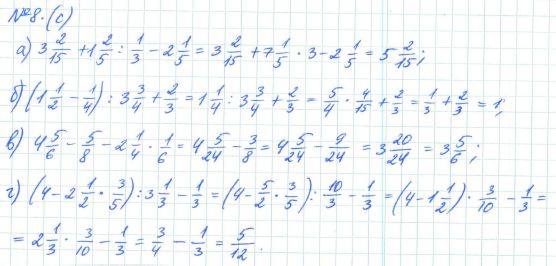 №8.(с)
а) 3 2/15 + 1 2/5 : 1/3 - 2 1/5 = 3 2/15 + 7 1/5 · 3 - 2 1/5 = 5 2/15;
б) (1 1/2 - 1/4) : 3 3/4 + 2/3 = 1 1/4 : 3 3/4 + 2/3 = 5/4 · 4/15 + 2/3 = 1/3 + 2/3 = 1;
в) 4 5/6 - 5/8 - 2 1/4 · 1/6 = 4 5/24 - 3/8 = 4 5/24 - 9/24 = 3 20/24 = 3 5/6;
г) (4 - 2 1/2 · 3/5) : 3 1/3 - 1/3 = (4 - 5/2 · 3/5) : 10/3 - 1/3 = (4 - 1 1/2) · 3/10 - 1/3 =
= 2 1/3 · 3/10 - 1/3 = 3/4 - 1/3 = 5/12.